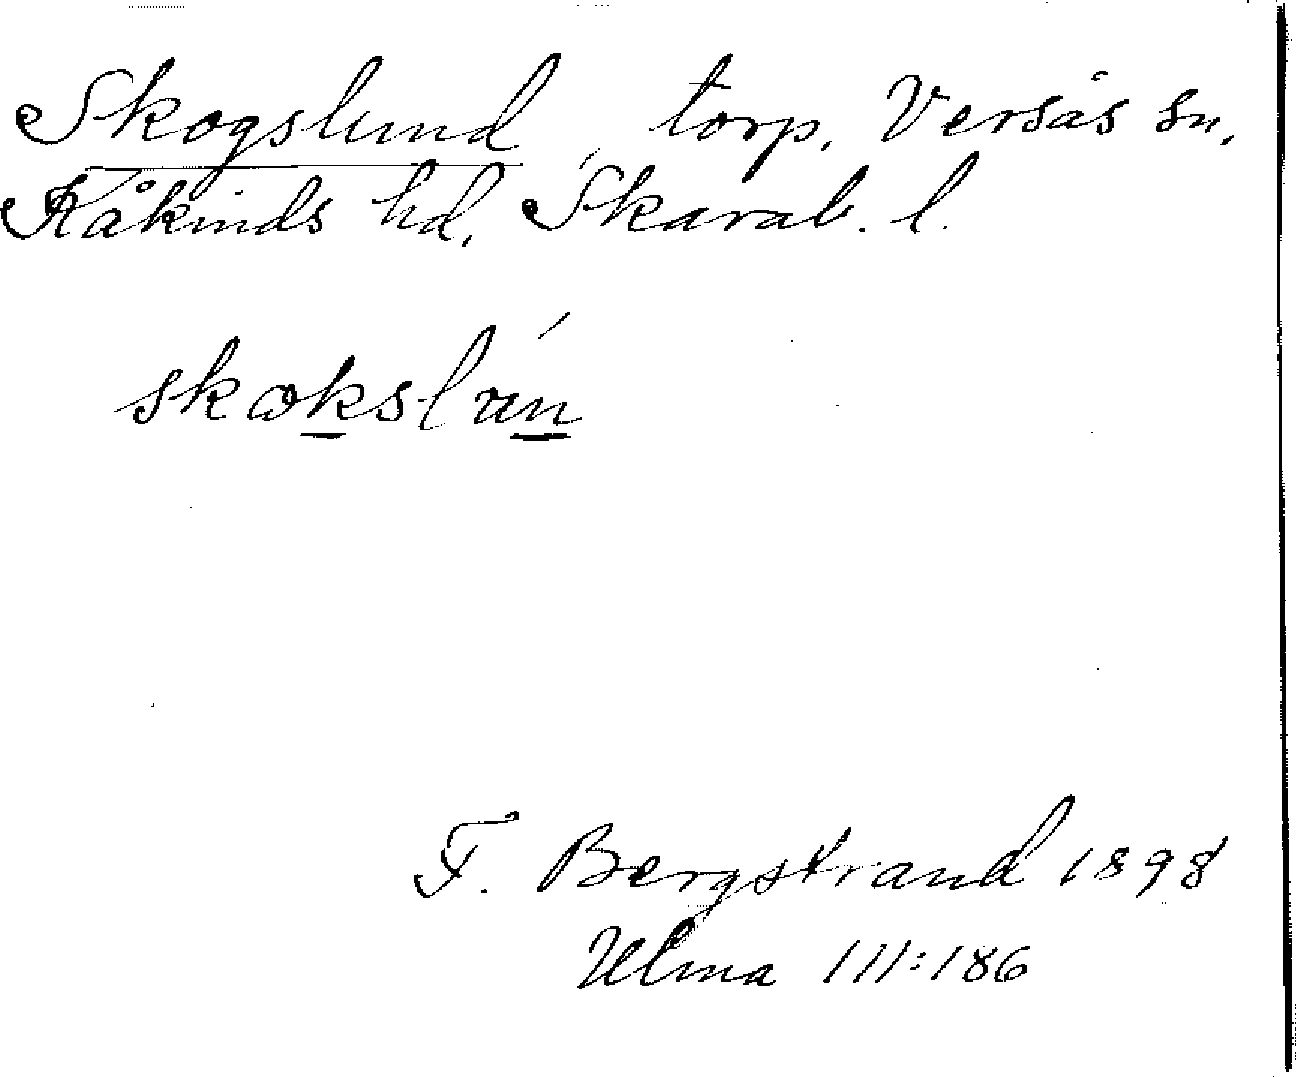 Skogslund, torp, Versås sn,
Kåkinds hd, Skarab. l.
skokslun
F. Bergstrand 1898
Ulma 111:186